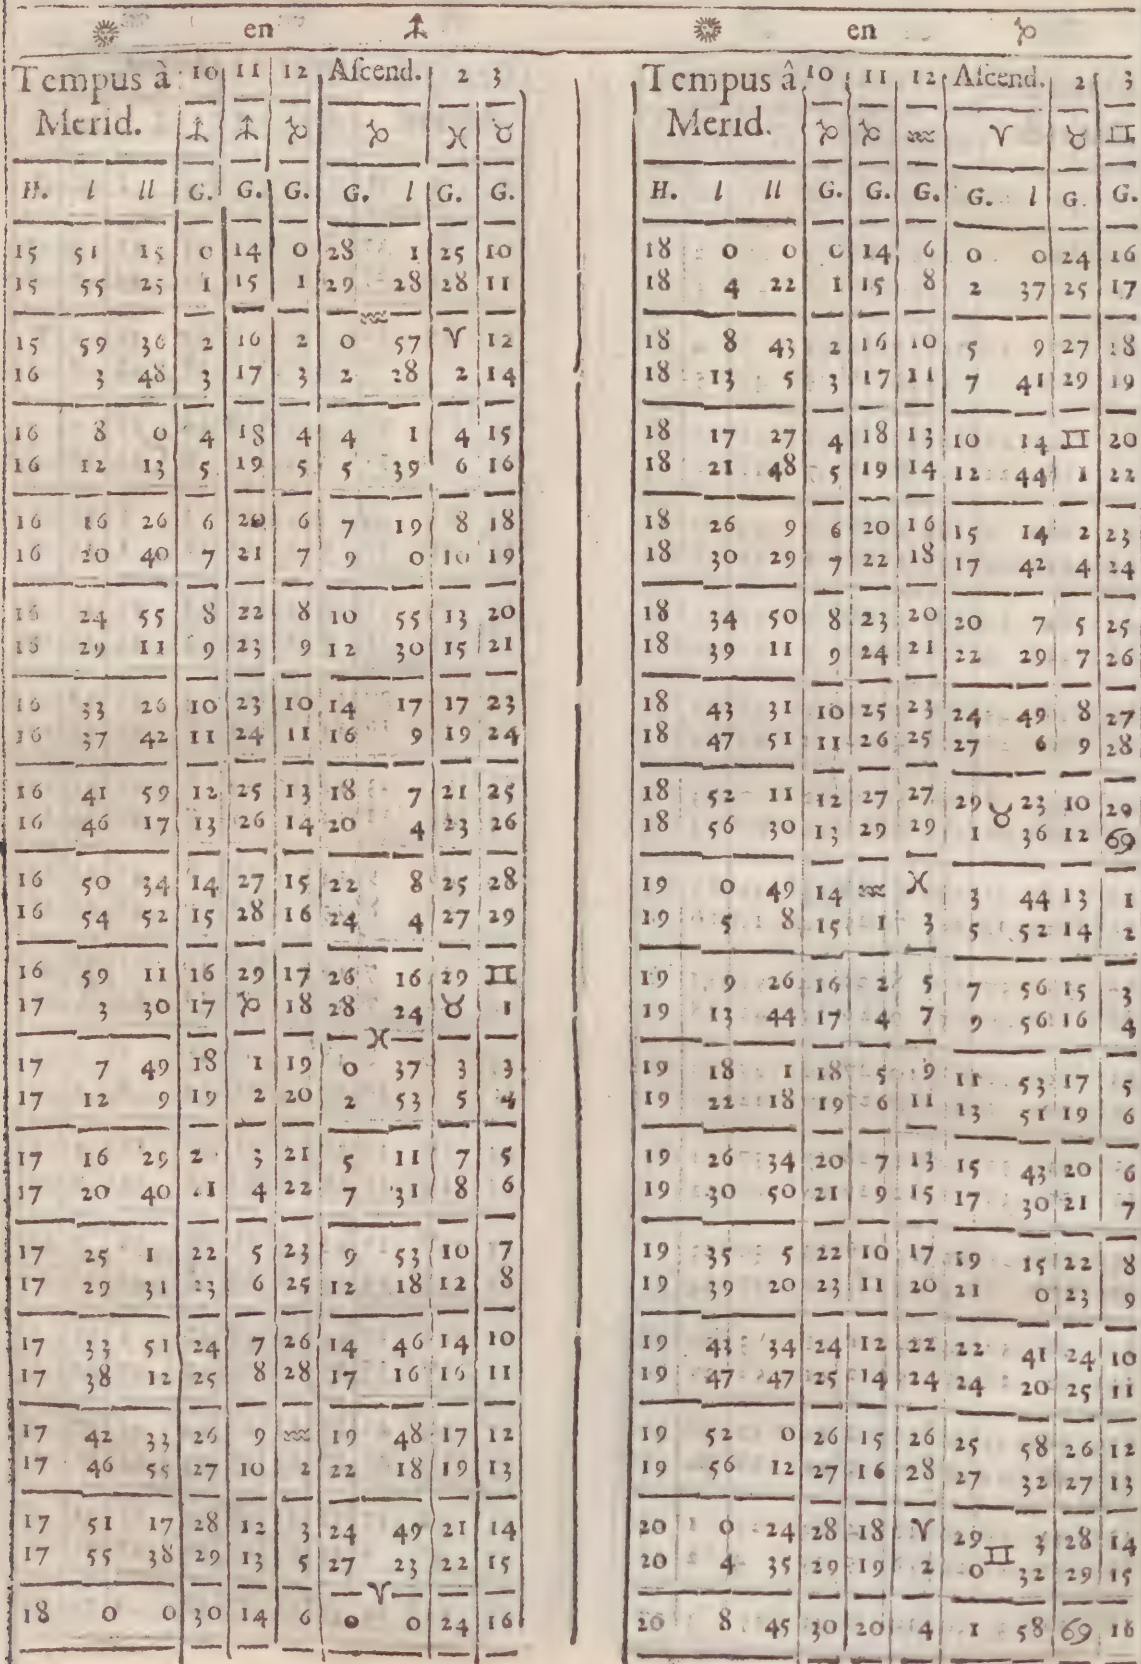 ☼ en ♐
Tempus à 10 11 12 Ascend. 2 3
Merid. ♐ ♐ ♑ ♑ ♓ ♉
H. l ll G. G. G. G. l G. G.
15 51 15 0 14 0 28 1 25 10
15 55 25 1 15 1 29 28 28 11
♒
15 59 36 2 16 2 0 57 ♈ 12
16 3 48 3 17 3 2 28 2 14
16 8 0 4 18 4 4 1 4 15
16 12 13 5 19 5 5 39 6 16
16 16 26 6 20 6 7 19 8 18
16 20 40 7 21 7 9 0 10 19
16 24 55 8 22 8 10 55 13 20
16 29 11 9 23 9 12 30 15 21
16 33 26 10 23 10 14 17 17 23
16 37 42 11 24 11 16 9 19 24
16 41 59 12 25 13 18 7 21 25
16 46 17 13 26 14 20 4 23 26
16 50 34 14 27 15 22 8 25 28
16 54 52 15 28 16 24 4 27 29
16 59 11 16 29 17 26 16 29 ♊
17 3 30 17 ♑ 18 28 24 ♉ 1
♓
17 7 49 18 1 19 0 37 3 3
17 12 9 19 2 20 2 53 5 4
17 16 29 2 3 21 5 11 7 5
17 20 40 1 4 22 7 31 8 6
17 25 1 22 5 23 9 53 10 7
17 29 31 23 6 25 12 18 12 8
17 33 51 24 7 26 14 46 14 10
17 38 12 25 8 28 17 16 16 11
17 42 33 26 9 ♒ 19 48 17 12
17 46 55 27 10 2 22 18 19 13
17 51 17 28 12 3 24 49 21 14
17 55 38 29 13 5 27 23 22 15
♈
18 0 0 30 14 6 0 0 24 16
☼ en ♑
Tempus â 10 11 12 Ascend. 2 3
Merid. ♑ ♑ ♒ ♈ ♉ ♊
H. l ll G. G. G. G. l G. G.
18 0 0 0 14 6 0 0 24 16
18 4 22 1 15 8 2 37 25 17
18 8 43 2 16 10 5 9 27 18
18 13 5 3 17 11 7 41 29 19
18 17 27 4 18 13 10 14 ♊ 20
18 21 48 5 19 14 12 44 1 22
18 26 9 6 20 16 15 14 2 23
18 30 29 7 22 18 17 42 4 24
18 34 50 8 23 20 20 7 5 25
18 39 11 9 24 21 22 29 7 26
18 43 31 10 25 23 24 49 8 27
18 47 51 11 26 25 27 6 9 28
18 52 11 12 27 27 29 23 10 29
♉
18 56 30 13 29 29 1 36 12 ♋
19 0 49 14 ♒ ♓ 3 44 13 1
19 5 8 15 1 3 5 52 14 2
19 9 26 16 2 5 7 56 15 3
19 13 44 17 4 7 9 56 16 4
19 18 1 18 5 9 11 53 17 5
19 22 18 19 6 11 13 51 19 6
19 26 34 20 7 13 15 43 20 6
19 30 50 21 9 15 17 30 21 7
19 35 5 22 10 17 19 15 22 8
19 39 20 23 11 20 21 0 23 9
19 43 34 24 12 22 22 41 24 10
19 47 47 25 14 24 24 20 25 11
19 52 0 26 15 26 25 58 26 12
19 56 12 27 16 28 27 32 27 13
20 0 24 28 18 ♈ 29 3 28 14
♊
20 4 35 29 19 2 0 32 29 15
20 8 45 30 20 4 1 58 ♋ 16